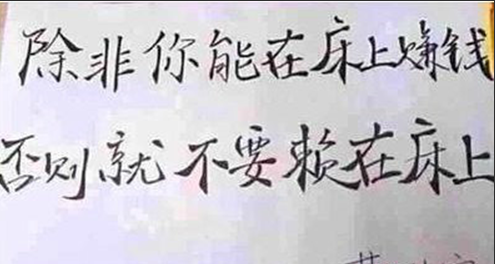 除非你能在床上赚钱
否则就不要赖在床上